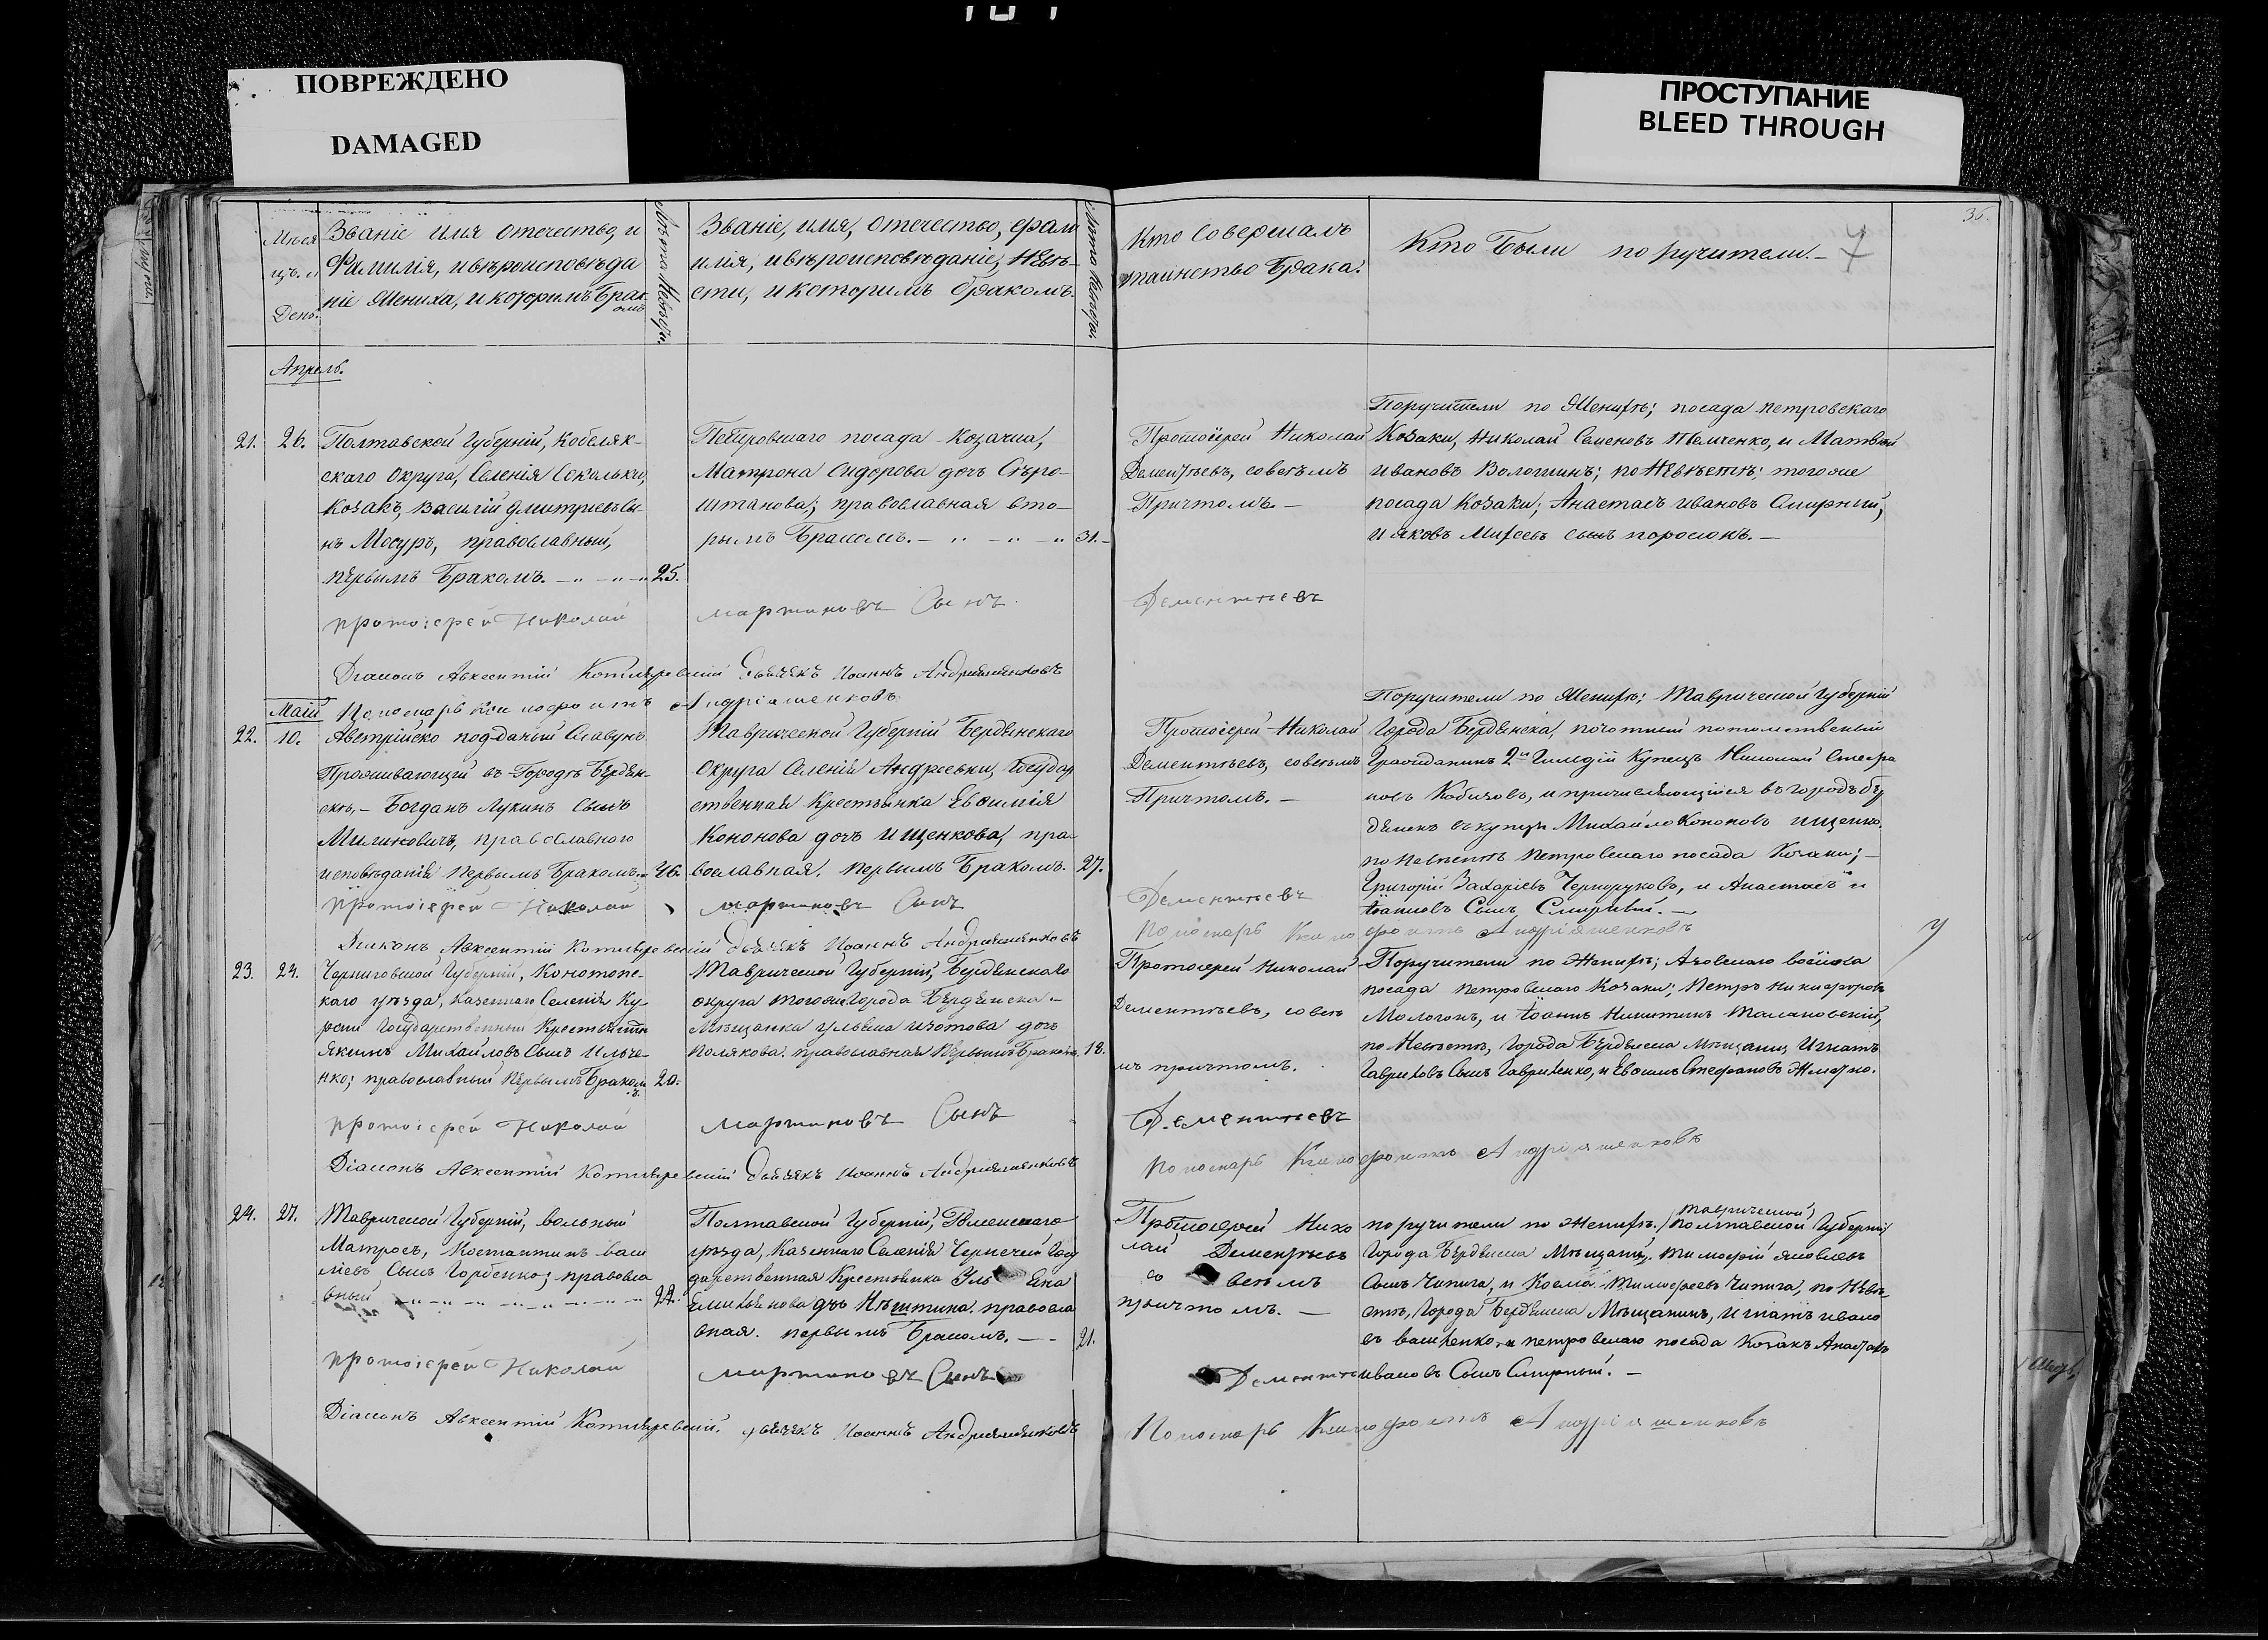 ПОВРЕЖДЕНО
DAMAGED
ПРОСТУПАНИЕ
BLEED THROUGH
36.
Мѣся
цъ. и
День.
Званіе имя отечество, и
Фамилія, и вѣроисповѣда
ніе Жениха, и которимъ Брак
омъ
Званіе, имя, отечество, фами
имія, и вѣроисповѣданіе, Невѣ-
сти, и которимъ бракомъ.
Кто совершалъ
таинство Брака.
Кто Были поручители.-
7
Апрель.
21. 26.
Полтавской Губерніи, Кобеляк-
скаго округа, Селенія Сокольки,
Козакъ, Василій Дмитріевъ сы-
нъ Мосуръ, православный,
первымъ Бракомъ. 25.
Петровскаго посада Козачка,
Матрона Сидорова дочь
православная вто-
рымъ Бракомъ. 31.
Протоіерей Николай
Дементьевъ, совсѣмъ
Причтомъ.-
Поручители по Женихѣ; посада петровскаго
Козаки, Николай Семеновъ и Матвѣй
Ивановъ Волошинъ; по Невѣстѣ; того же
посада Козаки; Анастасъ Ивановъ Смирный,
и Яковъ сынъ поросюкъ.-
протоіерей Николай
мартиновъ Сынъ.
Дементьевъ
Діаконъ Авксентій Котляревскій Дьячекъ Іоаннъ Андріяшенковъ
Пономарь Ксенофонтъ Андріяшенковъ
Маій
22. 10.
Австрійско подданый Славунъ
Проживающій въ Городѣ Бердян-
скѣ,- Богданъ Лукинъ сынъ
Милиновичъ, православнаго
исповѣданія первымъ Бракомъ. 26.
Таврической Губерніи Бердянскаго
округа Селенія Андреевки, Государ
ственная Крестьянка Евфимія
Кононова дочь Ищенкова, пра-
вославная, первымъ Бракомъ. 27.
Протоіерей Николай
Дементьевъ, совсѣмъ
Причтомъ.-
Поручители по Женихѣ; Таврической Губерніи
Города Бердянска, почотный потомственый
Гражданинъ 2й Гильдіи Купецъ Николай Стефа
новъ Кобизовъ, и причисляющійся въ городъ бер
дянскъ въ купцы Михайло Кононовъ Ищенко.
по невѣстѣ Петровскаго посада Козаки;-
Григорій Захаріевъ Черноруковъ, и Анастасъ
Іоанновъ Сынъ Смирный.-
протоіерей Николай
мартиновъ Сынъ
Дементьевъ
Діаконъ Авксентій Котляревскій Дьячекъ Іоаннъ Андріяшенковъ
Пономарь Ксенофонтъ Андріяшенковъ
23. 24.
Черниговской Губерніи, Конотопс-
каго уѣзда, казеннаго Селенія Ку-
Государственный Крестьянинъ
Якимъ Михайловъ Сынъ Ильче-
нко; православный первымъ Браком
ъ. 20.
Таврической Губерніи, Бердянскаго
округа того же Города Бердянска-
Мѣщанка Ульяна Изотова дочь
Полякова. православная Первымъ Бракомъ. 18.
Протоіерей Николай
Дементьевъ, совсѣ
мъ причтомъ.
Поручители по Женихѣ; Азовскаго войска
посада Петровскаго Козаки; Петръ Никифоровъ
Мологонъ, и Іоаннъ Никитинъ Талановскій,
по Невѣстѣ, Города Бердянска Мѣщани, Игнатъ
Гавриловъ Сынъ Гавриленко, и Евфимъ Стефановъ
протоіерей Николай
мартиновъ Сынъ
Дементьевъ
Діаконъ Авксентій Котляревскій Дьячекъ Іоаннъ Андріяшенковъ
Пономарь Ксенофонтъ Андріяшенковъ
24. 27.
Таврической Губерніи, вольный
Матросъ, Костантинъ васи
ліевъ Сынъ Горбенко; правосла
вный 22.
Полтавской Губерніи, Роменскаго
уѣзда, Казеннаго Селенія Чернечей Госу
дарственная Крестьянка
Емильянова дчь правосла
вная. первымъ Бракомъ. 21.
Протоіерей Нико
лай Дементьевъ
со всѣмъ
причтомъ.-
таврической
поручители по Женихѣ. полтавской Губерніи
Города Бердянска Мѣщани, Тимофій Яковлевъ
Сынъ Чипига, и Косма Тимофеевъ Чипига, по Невѣ-
стѣ, Города Бердянска Мѣщанинъ, Игнатъ Ивано
въ и петровскаго посада Козакъ Анастасъ
Ивановъ Сынъ Смирный.-
протоіерей Николай
мартиновъ Сынъ
Дементьевъ
Діаконъ Авксентій Котляревскій. Дьячекъ Іоаннъ Андріяшенковъ
Пономарь Ксенофонтъ Андріяшенковъ